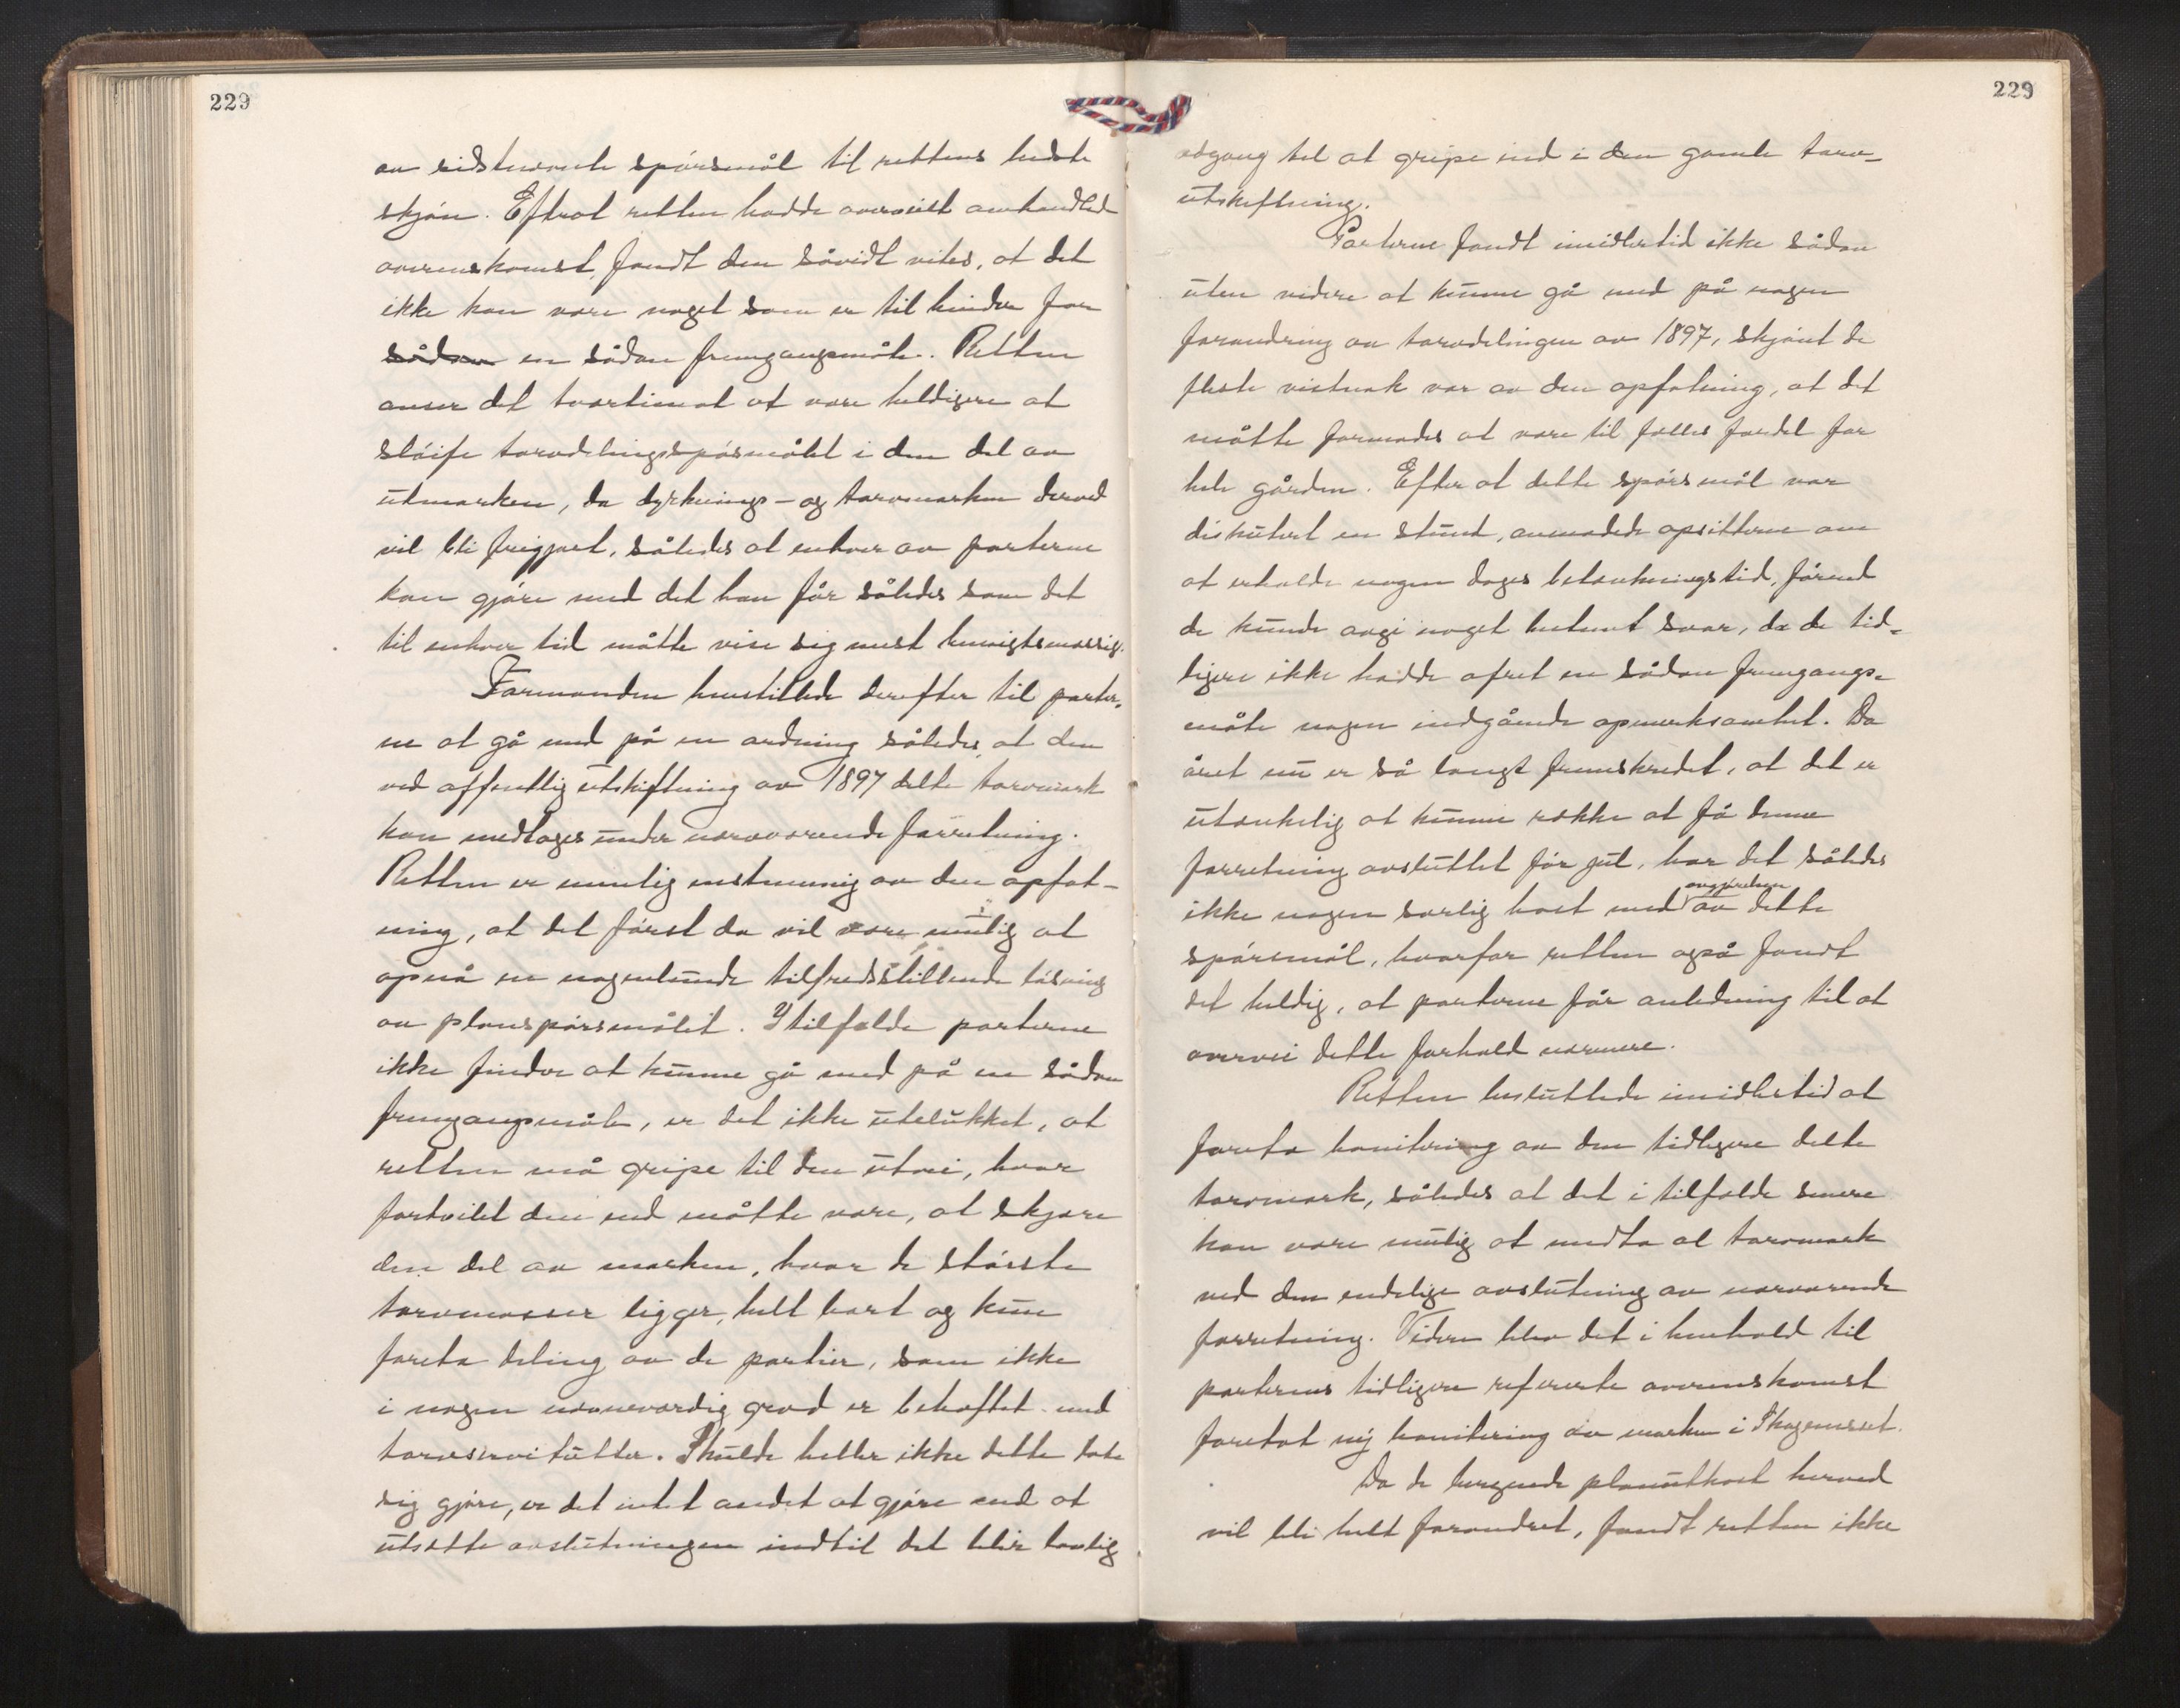 229
av sidstnævnte spörsmål til rettens bedste
skjön. Efterat retten hadde overveiet omhandlede
overenskomst, fandt den såvidt vites, at det
ikke kan være noget som er til hinder for
sådan en sådan fremgangsmåte. Retten
anser det tvertimot at være heldigere at
slöife torvdelingsspösmålet i den del av
utmarken, da dyrknings- og torvmarken derved
vil bli frigjort, således at enhver av parterne
kan gjöre med det han får således som det
til enhver tid måtte vise sig mest hensigtsmæssig.
Formanden henstillede derefter til parter-
ne at gå med på en ordning således, at den
ved offentlig utskiftning av 1897 delte torvmark
kan medtages under nærværende forretning.
Retten er nemlig enstemmig av den opfat-
ning, at det först da vil være mulig at
opnå en nogenlunde tilfredsstillende lösning
av planspörsmålet. I tilfælde parterne
ikke finder at kunne gå med på en sådan
fremgangsmåte, er det ikke utelukket, at
retten må gripe til den utvei, hvor
fortvilet den end måtte være, at skjære
den del av marken, hvor de störste
torvmasser ligger, helt bort og kun
foreta deling av de partier, som ikke
i nogen nævneværdig grad er beheftet med
torvservitutter. Skulde heller ikke dette late
sig gjöre, er det intet andet at gjöre end at
utsætte avslutningen indtil det blir lovlig
229
adgang til at gripe ind i den gamle torv-
utskiftning.
Parterne fandt imidlertid ikke sådan
uten videre at kunne gå med på nogen
forandring av torvdelingen av 1897, skjönt de
fleste vistnok var av den opfatning, at det
måtte formodes at være til fælles fordel for
hele gården. Efter at dette spörsmål var
diskutert en stund, anmodede opsitterne om
at erholde nogen dages betænkningstid, förend
de kunde avgi noget bestemt svar, da de tid-
ligere ikke hadde ofret en sådan fremgangs-
måte nogen indgående opmerksomhet. Da
året nu er så langt fremskredet, at det er
utænkelig at kunne række at få denne
forretning avsluttet för jul, har det således
ikke nogen særlig hast med avgjörelsen av dette
spörsmål, hvorfor retten også fandt
det heldig, at parterne får anledning til at
overvei dette forhold nærmere.
Retten besluttede imidlertid at
foreta bonitering av den tidligere delte
torvmark, således at det i tilfælde senere
kan være mulig at medta al torvmark
ved den endelige avslutning av nærværende
forretning. Videre blev det i henhold til
parternes tidligere refererte overenskomst
foretat ny bonitering av marken i Skogemyret.
Da de byggende planutkast herved
vil bli helt forandret, fandt retten ikke